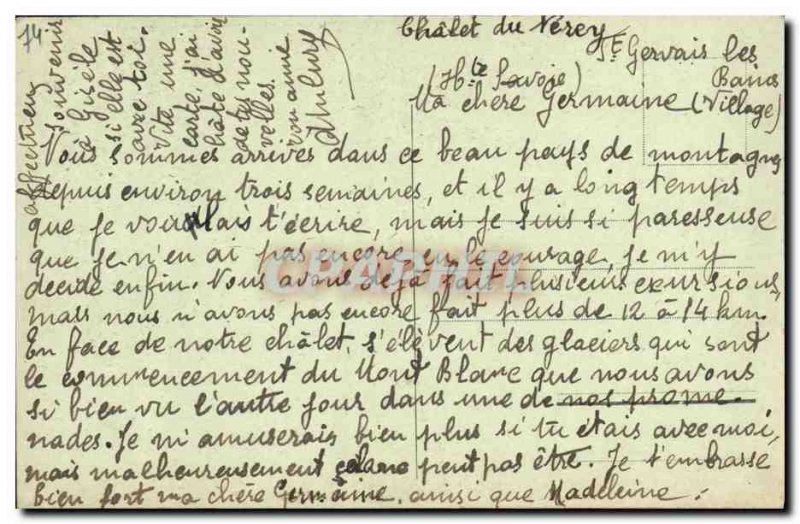 Châlet du Nérey
St Gervais les
Bains
(Hte Savoie)
(Village)
Ma chère Germaine
Nous sommes arrivés dans ce beau pays de montagnes
depuis environ trois semaines, et il y a long temps
que je voulais t'écrire, mais je suis si paresseuse
que je n'en ai pas encore eu le courage, je m'y
décide enfin. Nous avons déjà fait plusieurs excursions,
mais nous n'avons pas encore fait plus de 12 à 14 km.
En face de notre châlet, s'élèvent des glaciers qui sont
le commencement du Mont Blanc que nous avons
si bien vu l'autre jour dans une de nos prome.
nades. Je m'amuserais bien plus si tu étais avec moi,
mais malheureusement cela ne peut pas être. Je t'embrasse
bien fort ma chère Germaine, ainsi que Madeleine.
affectueux
souvenirs
à Gisèle
si elle est
avec toi.
Vite une
carte, j'ai
hâte d'avoir
de tes nou-
velles.
ton amie
74
CPAPHIL